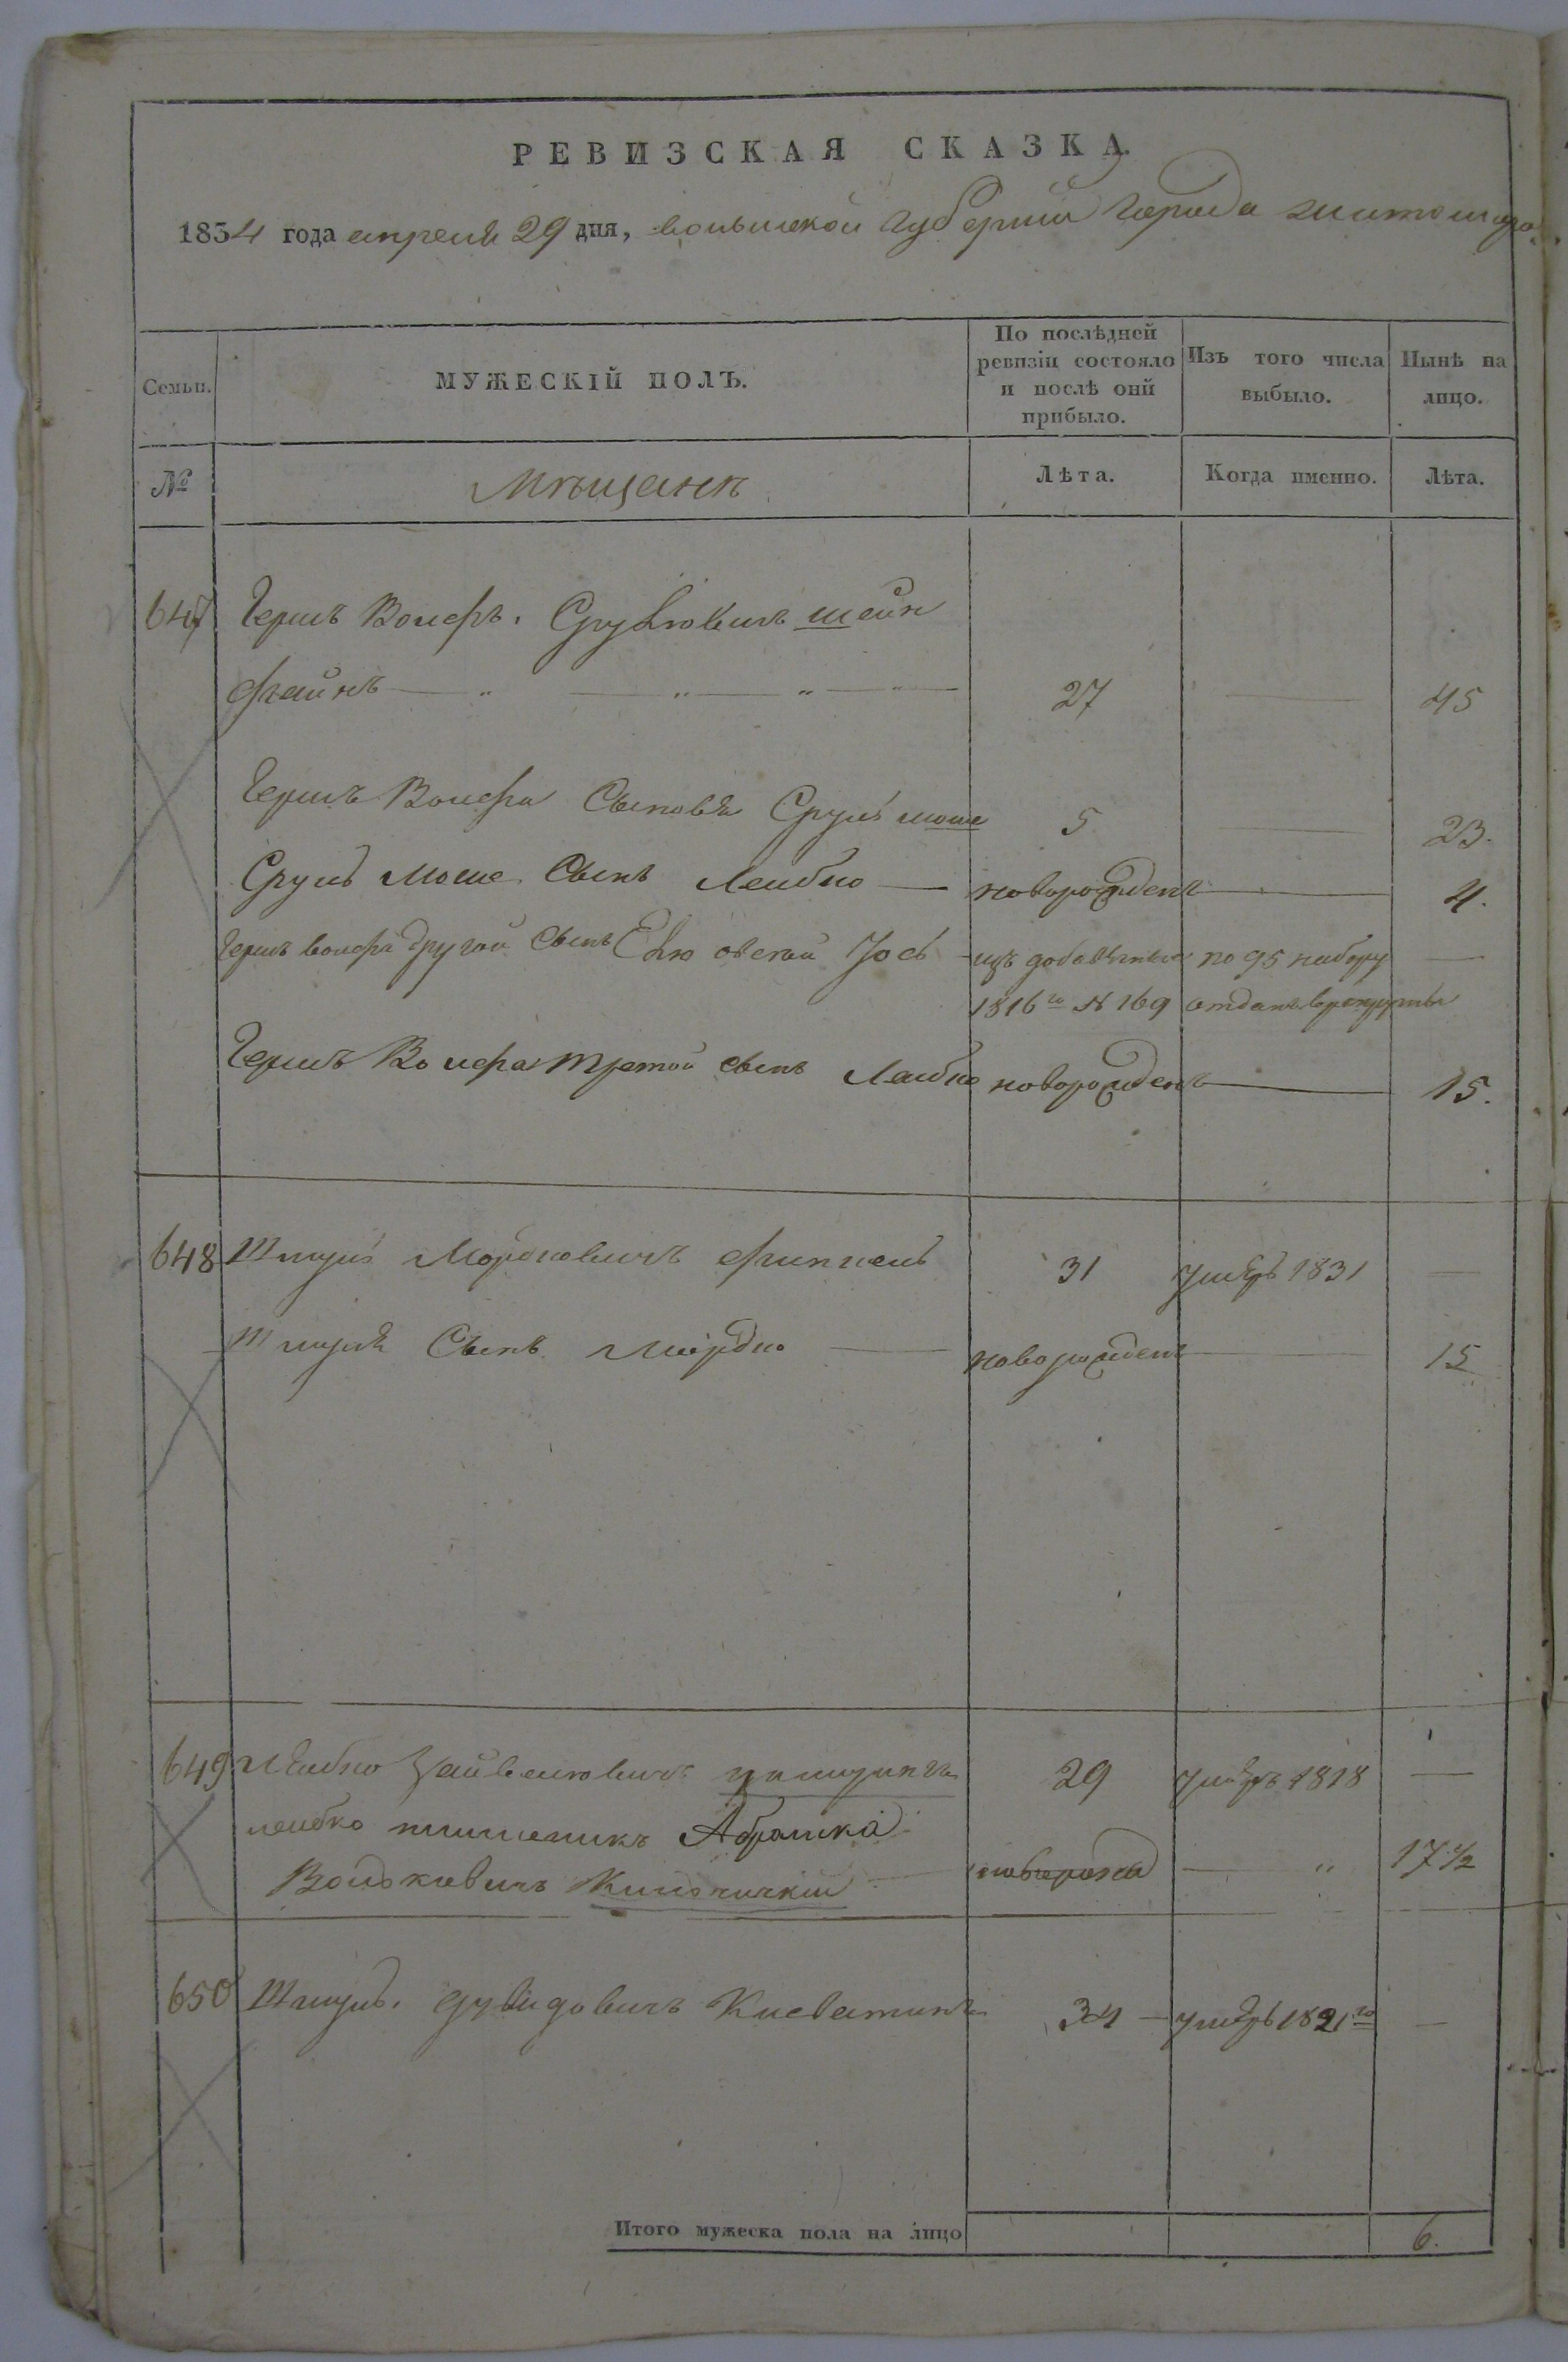 РЕВИЗСКАЯ СКАЗКА.
1834 года апреля 29 дня, волынской губернии города житомира
Семьи.
МУЖЕСКІЙ ПОЛЪ.
По послѣдней ревизіи состояло и послѣ оной прибыло.
Изъ того числа выбыло.
Нынѣ на лицо.
№
Мѣщанѣ
Лѣта.
Когда именно.
Лѣта.
647 Гершъ Волфъ. Срулювичъ шейн
файнъ 27 45
Гершъ Волфа Сыновья Сруль моше 5 23.
Сруль Моше Сынъ Лейбко новорожденъ 4.
Гершъ волфа другой Сынъ Елю Іось изъ добавочныхъ по 95 набору
1816го № 169 отданъ в рекруты
Гершъ Волфа третой сынъ Лейбко новорожденъ 15.
648 Шмуль Мордковичъ финкель 31 умеръ 1831
Шмуля Сынъ Мордко новорожденъ 15
649 Лейбко Зайвелювичъ 29 умеръ 1818
лейбко Абрамка
Волькович 17 1/2
650 Шмуль. дувидовичъ 34 умеръ 1821го
Итого мужеска пола на лицо 6.